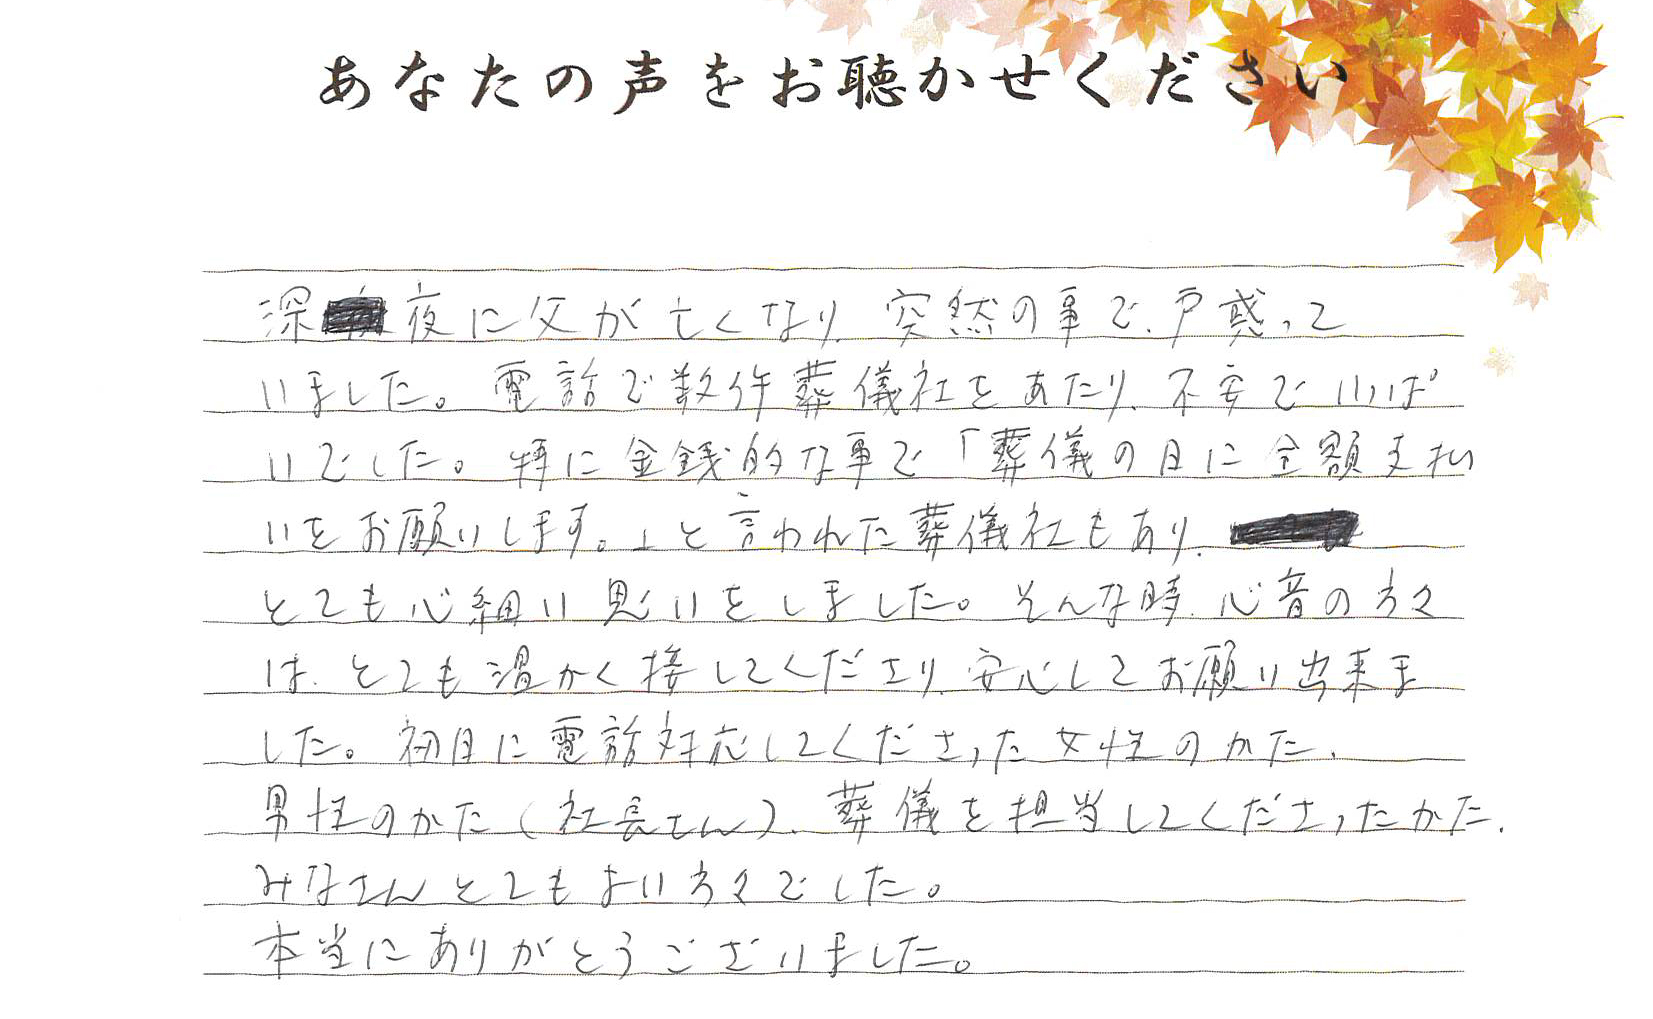 あなたの声をお聴かせください
深夜に父が亡くなり、突然の事で、戸惑って
いました。電話で数件葬儀社をあたり、不安でいっぱ
いでした。特に金銭的な事で「葬儀の日に全額支払
いをお願いします。」と言われた葬儀社もあり、
とても心細い思いをしました。そんな時、心音の方々
は、とても温かく接してくださり、安心してお願い出来ま
した。初日に電話対応してくださった女性のかた、
男性のかた(社長さん)、葬儀を担当してくださったかた、
みなさんとてもよい方々でした。
本当にありがとうございました。